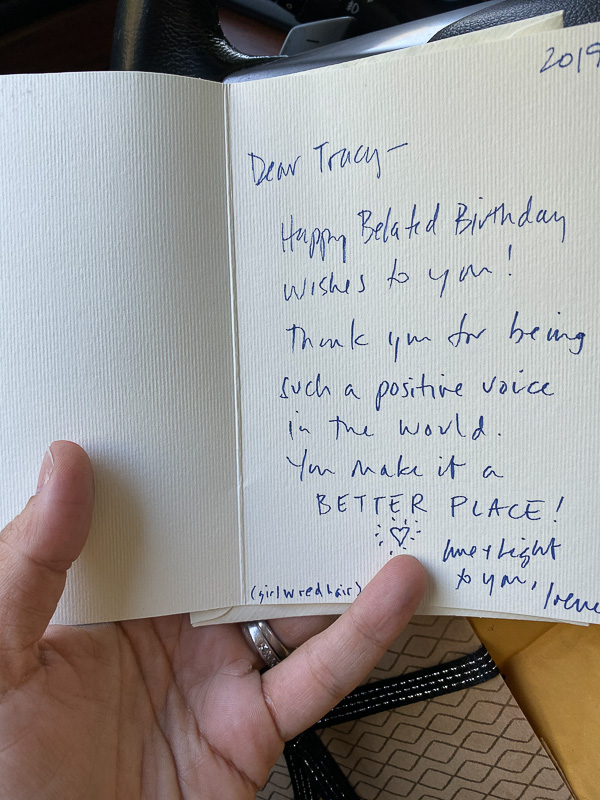 2019
Dear Tracy—
Happy Belated Birthday
wishes to you!
Thank you for being
such a positive voice
in the world.
You make it a
BETTER PLACE!
love + Light
to you,
Irene
(girlwredhair)